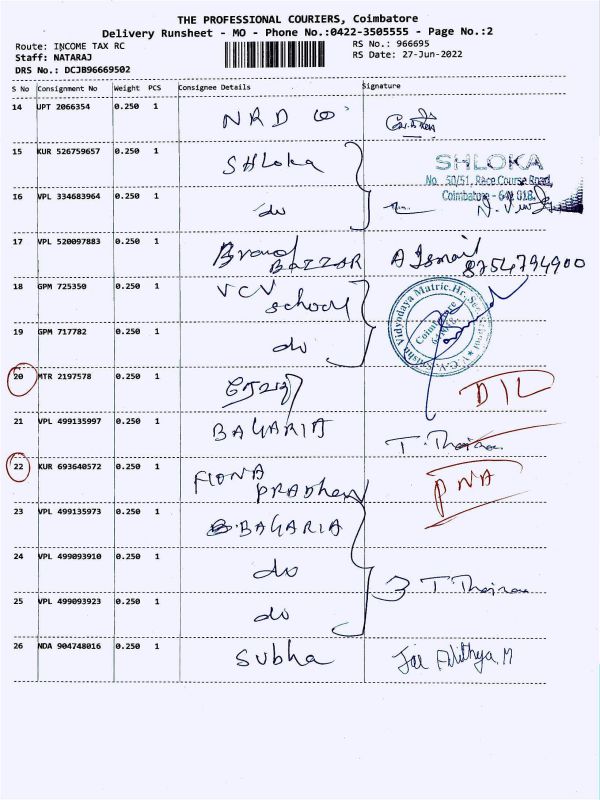 THE PROFESSIONAL COURIERS, Coimbatore
Delivery Runsheet - MO - Phone No.:0422-3505555 - Page No.:2
Route: INCOME TAX RC
RS No.: 966695
Staff: NATARAJ
RS Date: 27-Jun-2022
DRS No.: DCJB96669502
S No Consignment No Weight PCS Consignee Details Signature
14 UPT 2066354 0.250 1 NRD
15 KUR 526759657 0.250 1 SHLoka
SHLOKA
No. 50/51, Race Course Road,
Coimbatore - 641 018.
16 VPL 334683964 0.250 1 do
17 VPL 520097883 0.250 1 Brand BAZZAR A Ismail
8754794900
18 GPM 725350 0.250 1 VCV school
Coimbatore
19 GPM 717782 0.250 1 do
20 MTR 2197578 0.250 1 D/L
21 VPL 499135997 0.250 1 BAGARIA
22 KUR 693640572 0.250 1 FIONA PRADHAN PNA
23 VPL 499135973 0.250 1 BAGARIA
24 VPL 499093910 0.250 1 do
25 VPL 499093923 0.250 1 do
26 NDA 904748016 0.250 1 Subha Jai Adithya M